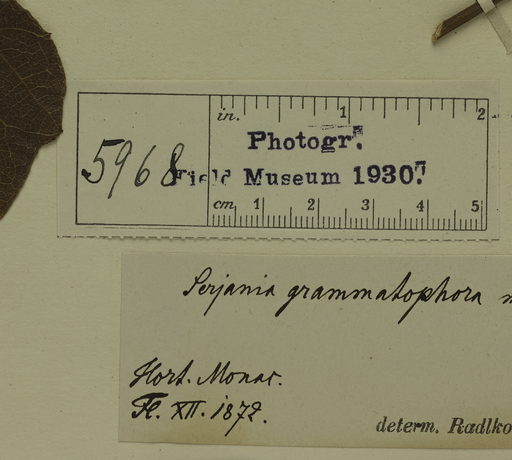 in. 1 2
Photogr.
5968
Field Museum 1930.
cm. 1 2 3 4 5
Serjania grammatophora
Hort. Monac.
Fl. XII. 1872.
determ. Radlko